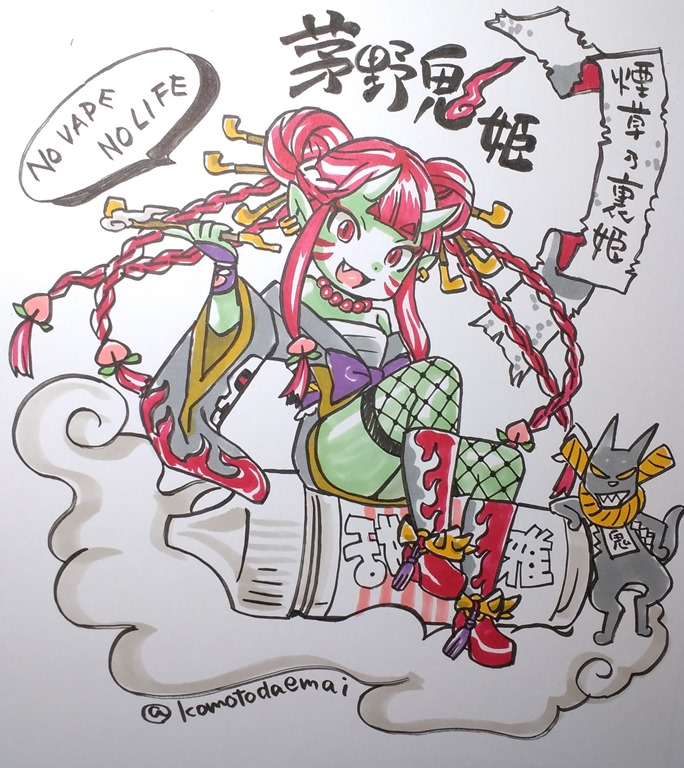 NO VAPE
NO LIFE
茅野鬼姫
煙草の裏姫
鬼
@komotodaemai